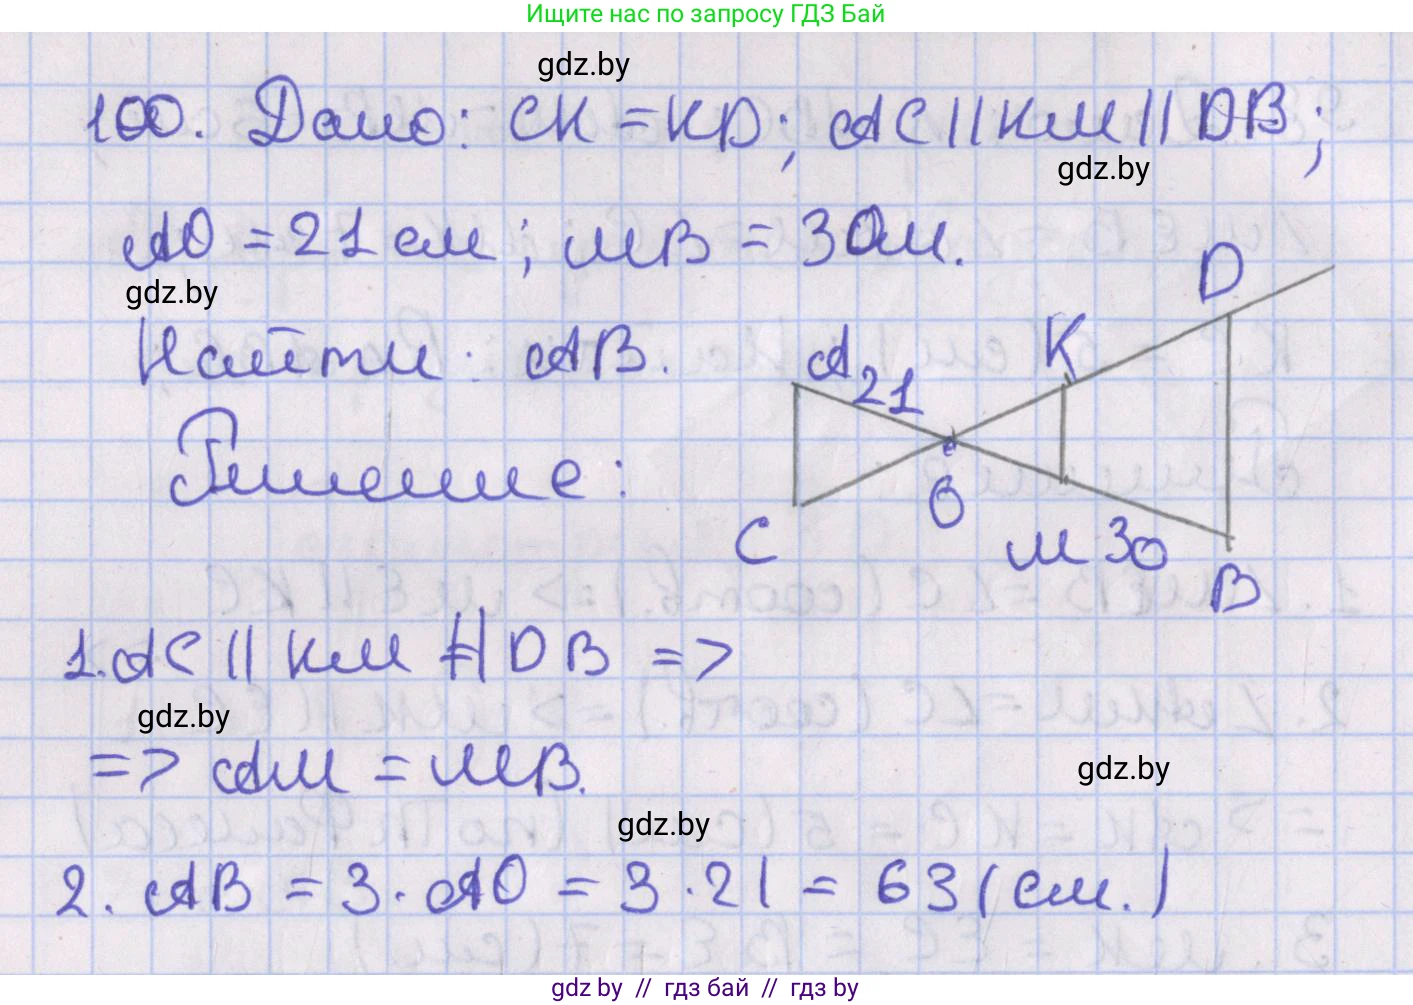 Ищите нас по запросу ГДЗ Бай
gdz.by
100. Дано: CK = KD; AC || KM || DB;
gdz.by
AO = 21 см; MB = 30м.
gdz.by
Найти: AB.
D
K
A
21
Решение:
O
C
M 30
B
1. AC || KM || DB =>
gdz.by
=> AM = MB.
gdz.by
gdz.by
2. AB = 3 · AO = 3 · 21 = 63 (см.)
gdz.by // гдз бай // гдз by